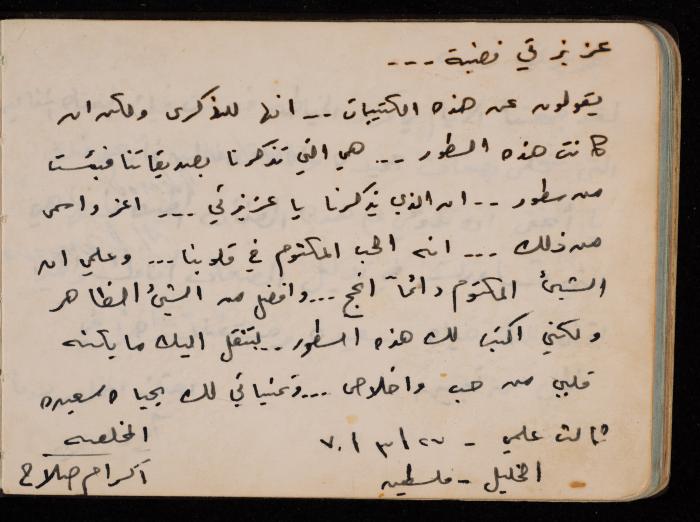 عزيزتي فضية ---
يقولون عن هذه الكتيبات --- انها للذكرى ولكن ان
كانت هذه السطور --- هي التي تذكرنا بصديقاتنا فبئست
من سطور --- ان الذي يذكرنا يا عزيزتي --- اعز واسمى
من ذلك --- انه الحب المكتوم في قلوبنا --- وعلمي ان
الشيئ المكتوم دائماً انجح --- وافضل من الشيئ الظاهر
ولكني اكتب لك هذه السطور -- لتنقل اليك ما يكنه
قلبي من حب واخلاص --- وتمنياتي لك بحياه سعيده
ثالث علمي - ٢٧ / ٣ / ٧٠ المخلصه
الخليل - فلسطين اكرام صلاح